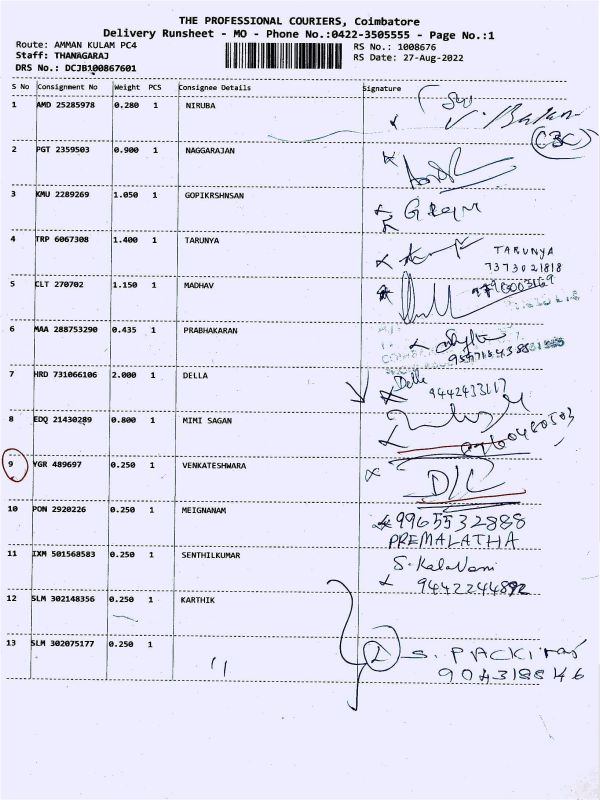 THE PROFESSIONAL COURIERS, Coimbatore
Delivery Runsheet - MO - Phone No.:0422-3505555 - Page No.:1
Route: AMMAN KULAM PC4
Staff: THANAGARAJ
DRS No.: DCJB100867601
RS No.: 1008676
RS Date: 27-Aug-2022
S No Consignment No Weight PCS Consignee Details Signature
1 AMD 25285978 0.280 1 NIRUBA
CBC
2 PGT 2359503 0.900 1 NAGGARAJAN
3 KMU 2289269 1.050 1 GOPIKRSHNSAN
4 TRP 6067308 1.400 1 TARUNYA TARUNYA
7373021818
5 CLT 270702 1.150 1 MADHAV
6 MAA 288753290 0.435 1 PRABHAKARAN
7 HRD 731066106 2.000 1 DELLA Della
9442433117
8 EDQ 21430289 0.800 1 MIMI SAGAN
9 YGR 489697 0.250 1 VENKATESHWARA D/C
10 PON 2920226 0.250 1 MEIGNANAM 9965532888
PREMALATHA
11 IXM 501568583 0.250 1 SENTHILKUMAR S. Kalavani
9442244892
12 SLM 302148356 0.250 1 KARTHIK
13 SLM 302075177 0.250 1 2 S. PACKIRAJ
9043188146